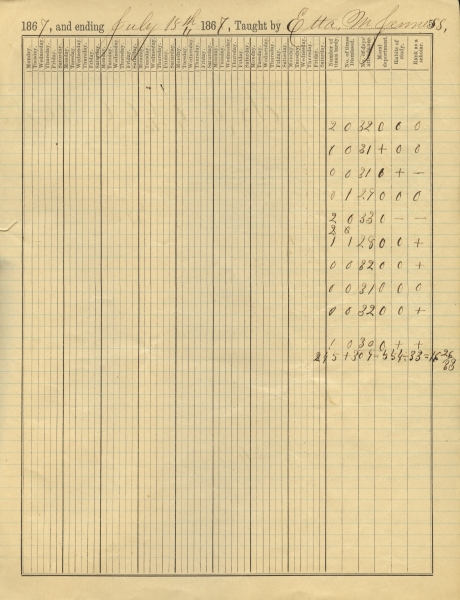 1867, and ending July 18th 1867, Taught by Etta M.
Monday. Tuesday. Wednesday. Thursday. Friday. Saturday. Monday. Tuesday. Wednesday. Thursday. Friday. Saturday. Monday. Tuesday. Wednesday. Thursday. Friday. Saturday. Monday. Tuesday. Wednesday. Thursday. Friday. Saturday. Monday. Tuesday. Wednesday. Thursday. Friday. Saturday. Monday. Tuesday. Wednesday. Thursday. Friday. Saturday. Monday. Tuesday. Wednesday. Thursday. Friday. Saturday. Monday. Tuesday. Wednesday. Thursday. Friday. Saturday. Number of times tardy. No. of times dismissed. No. of days attendance. Moral deportment. Habits of study. Rank as a scholar.
2 0 32 0 0 0
0 0 31 + 0 0
0 0 31 0 + —
0 1 29 0 0 0
2 0 33 0 — —
1 1 28 0 0 +
0 0 32 0 0 +
0 0 31 0 0 0
0 0 32 0 0 +
1 0 30 0 + +